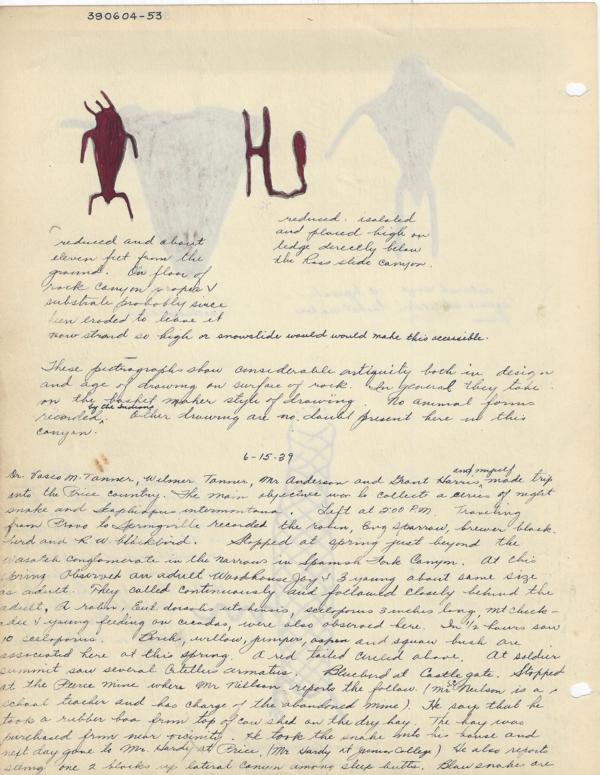 390604-53
reduced and about
eleven feet from the
ground. On floor of
rock canyon proper &
substrate probably since
ben eroded to leave it
now strand so high or snowslide would would make this accessible.
reduced. isolated
and placed high on
ledge directly below
the Ross slide Canyon.
These pictographs show considerable antiquity both in design
and age of drawing on surface of rock. In general they take
on the basket maker style of drawing. No animal forms
recorded, by the Indians. Other drawing are no doubt present here in this
canyon.
6-15-39
Dr. Vasco M. Tanner, Wilmer Tanner, Mr Anderson and Grant Harris, and myself made trip
into the Price country. The main objective was to collect a series of night
snake and Scaphiopus intermontana. Left at 2:00 P.M. Traveling
from Provo to Springville recorded the robin, Eng sparrow, brewer black-
bird and R.W. blackbird. Stopped at spring just beyond the
Wasatch conglomerate in the narrows in Spanish Fork Canyon. At this
spring observed an adult Woodhouse Jay & 3 young about same size
as adult. They called continuously and followed closely behind the
adult. A robin, Eut. dorsalis, 3 inches long, Mt chick-
adee & young feeding on cicadas, were also observed here. In ½ hours saw
10 sceloporus. Birch, willow, juniper, aspen and squaw bush are
associated here at this spring. A red tailed circled above. At soldier
summit saw several Citellus armatus. Bluebird at Castle gate. Stopped
at the Peerce mine where Mr Nillson, reports the follow. (Mr. Neilson is a
school teacher and has charge of the abandoned mine). He say that he
took a rubber boa from top of cow shed on the dry hay. The hay was
purchased from near vicinity. He took the snake into his house and
next day gave to Mr. Hardy at Price. (Mr Hardy at Junior College) He also reports
seeing one 2 blocks up lateral canyon among steep butts. Blow snakes are